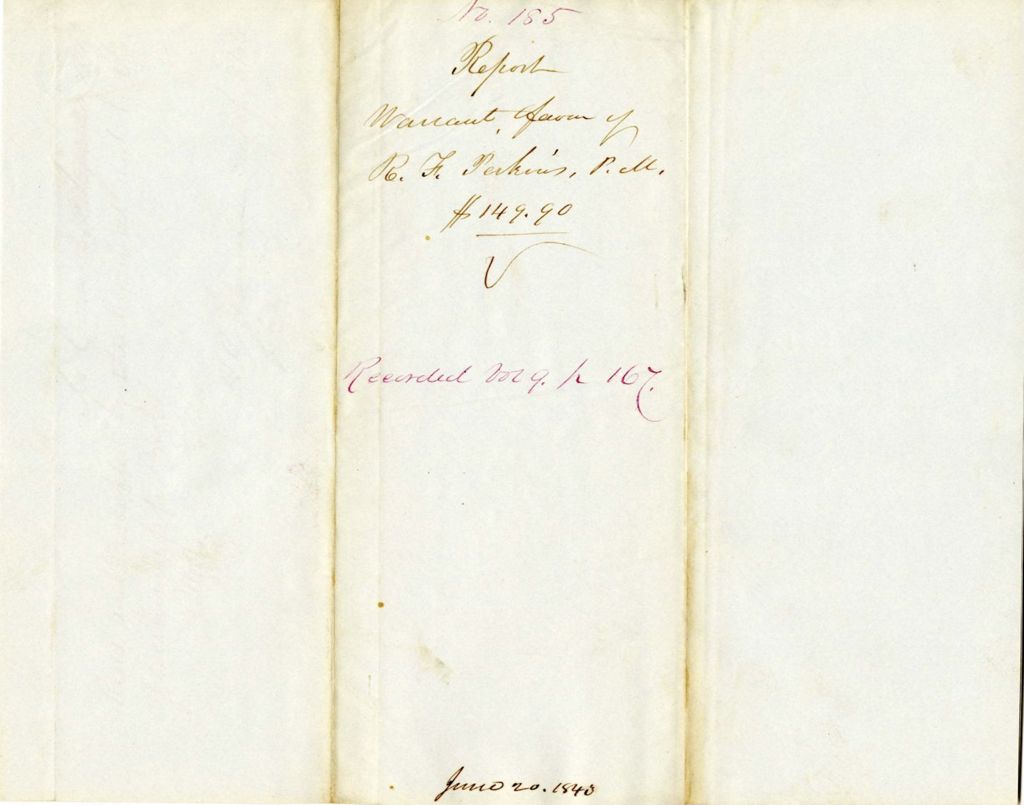 No. 185
Report
Warrant, favor of
R. F. Perkins, P. M.
$149.90
Recorded Vol 9. p 167.
June 20. 1843